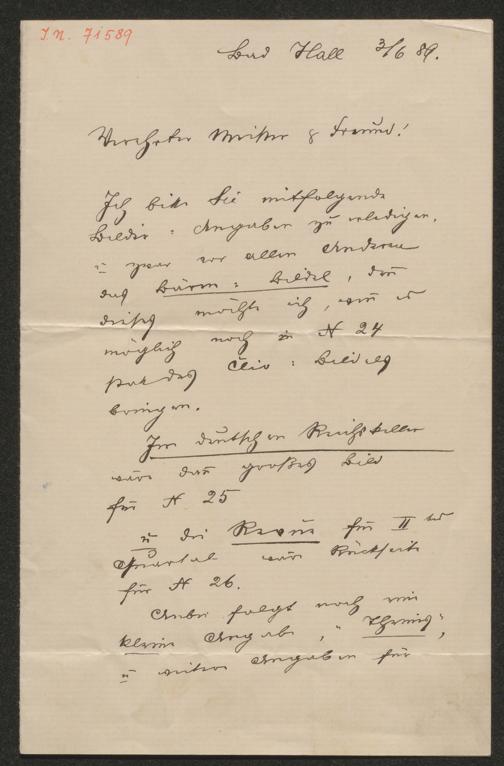 I.N. 71589
Bad Hall 3/6 89.
Verehrter Meister & Freund!
Ich bitte Sie mitfolgende
Bilder: Angaben zu erledigen,
u zwar vor allen Anderen
das Bären: Bildel, den
dieses möchte ich, wen es
möglich noch in N 24
statt des Clio: Bildes
bringen.
Im deutschen Reichskeller
wäre dan großes Bild
für N 25
u die Revue für II tes
Quartal wäre Rückseite
für N 26.
Anbei folgt noch eine
kleine Angabe,
u weitere Angaben für